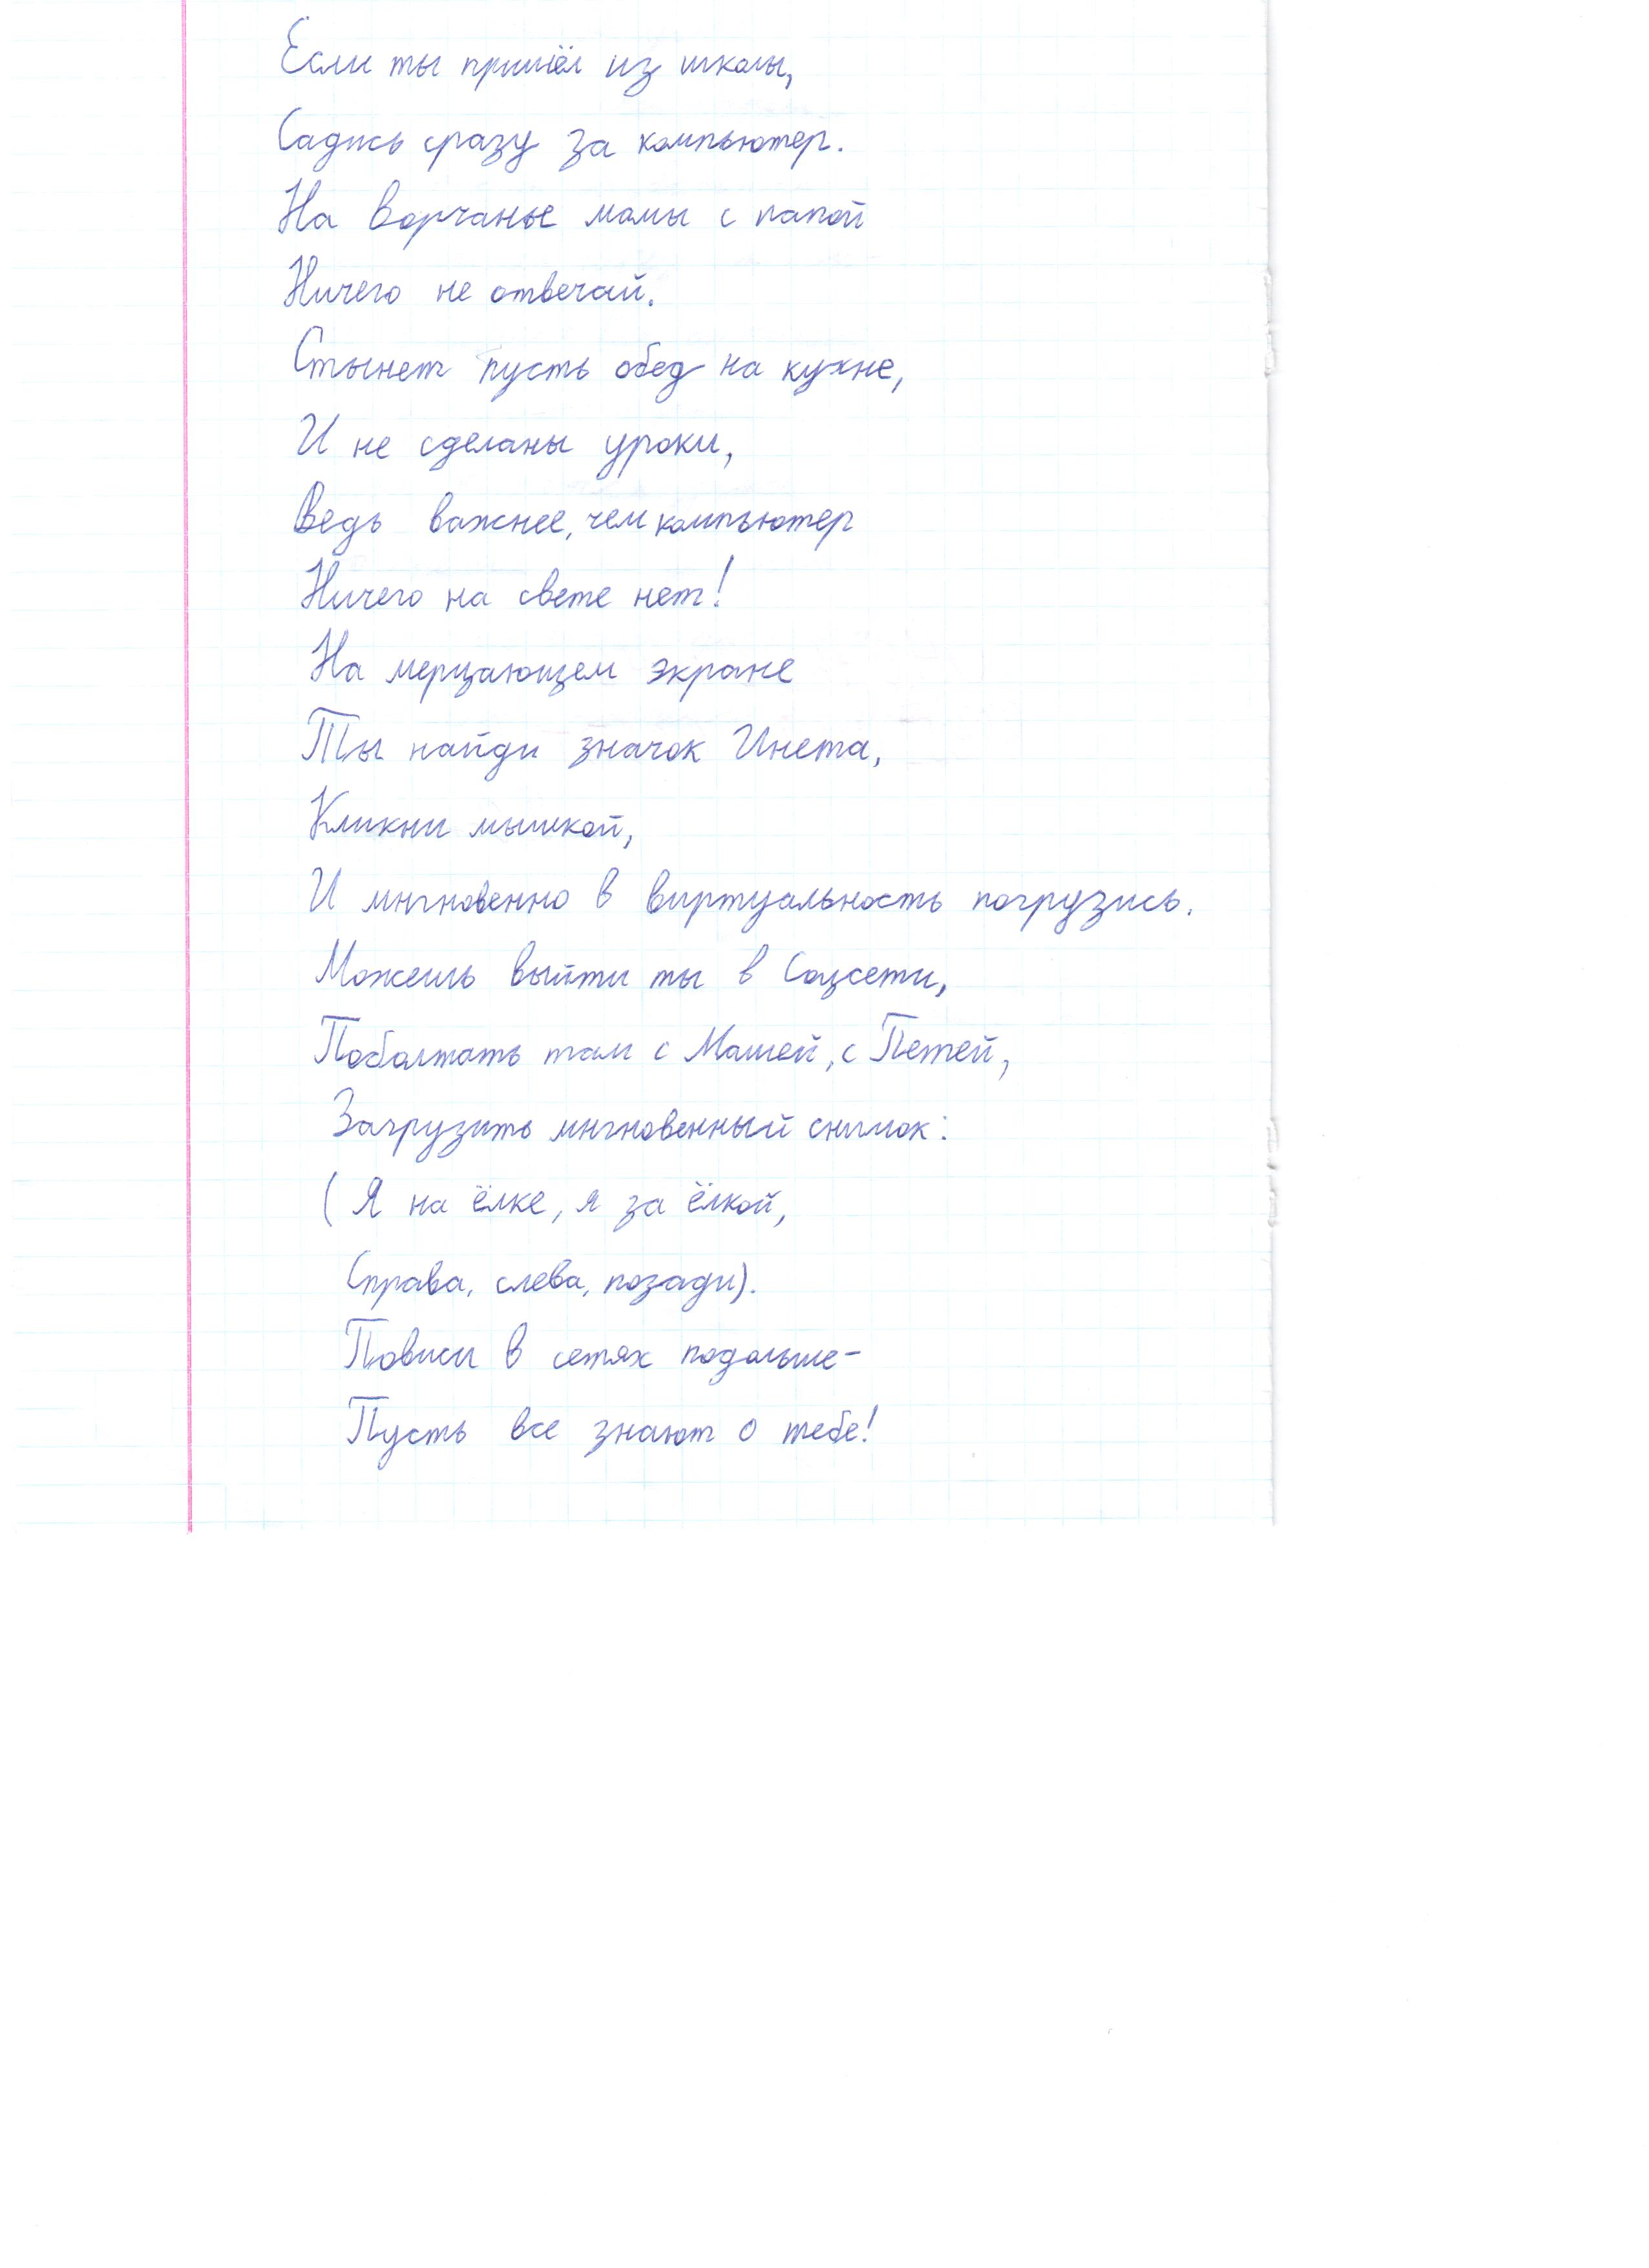 Если ты пришёл из школы,
Садись сразу за компьютер.
На ворчанье мамы с папой
Ничего не отвечай.
Стынет пусть обед на кухне,
И не сделаны уроки,
Ведь важнее, чем компьютер
Ничего на свете нет!
На мерцающем экране
Ты найди значок Инета,
Кликни мышкой,
И мгновенно в виртуальность погрузись.
Можешь выйти ты в Соцсети,
Поболтать там с Машей, с Петей,
Загрузить мгновенный снимок:
(Я на ёлке, я за ёлкой,
Справа, слева, позади).
Повиси в сетях подольше-
Пусть все знают о тебе!